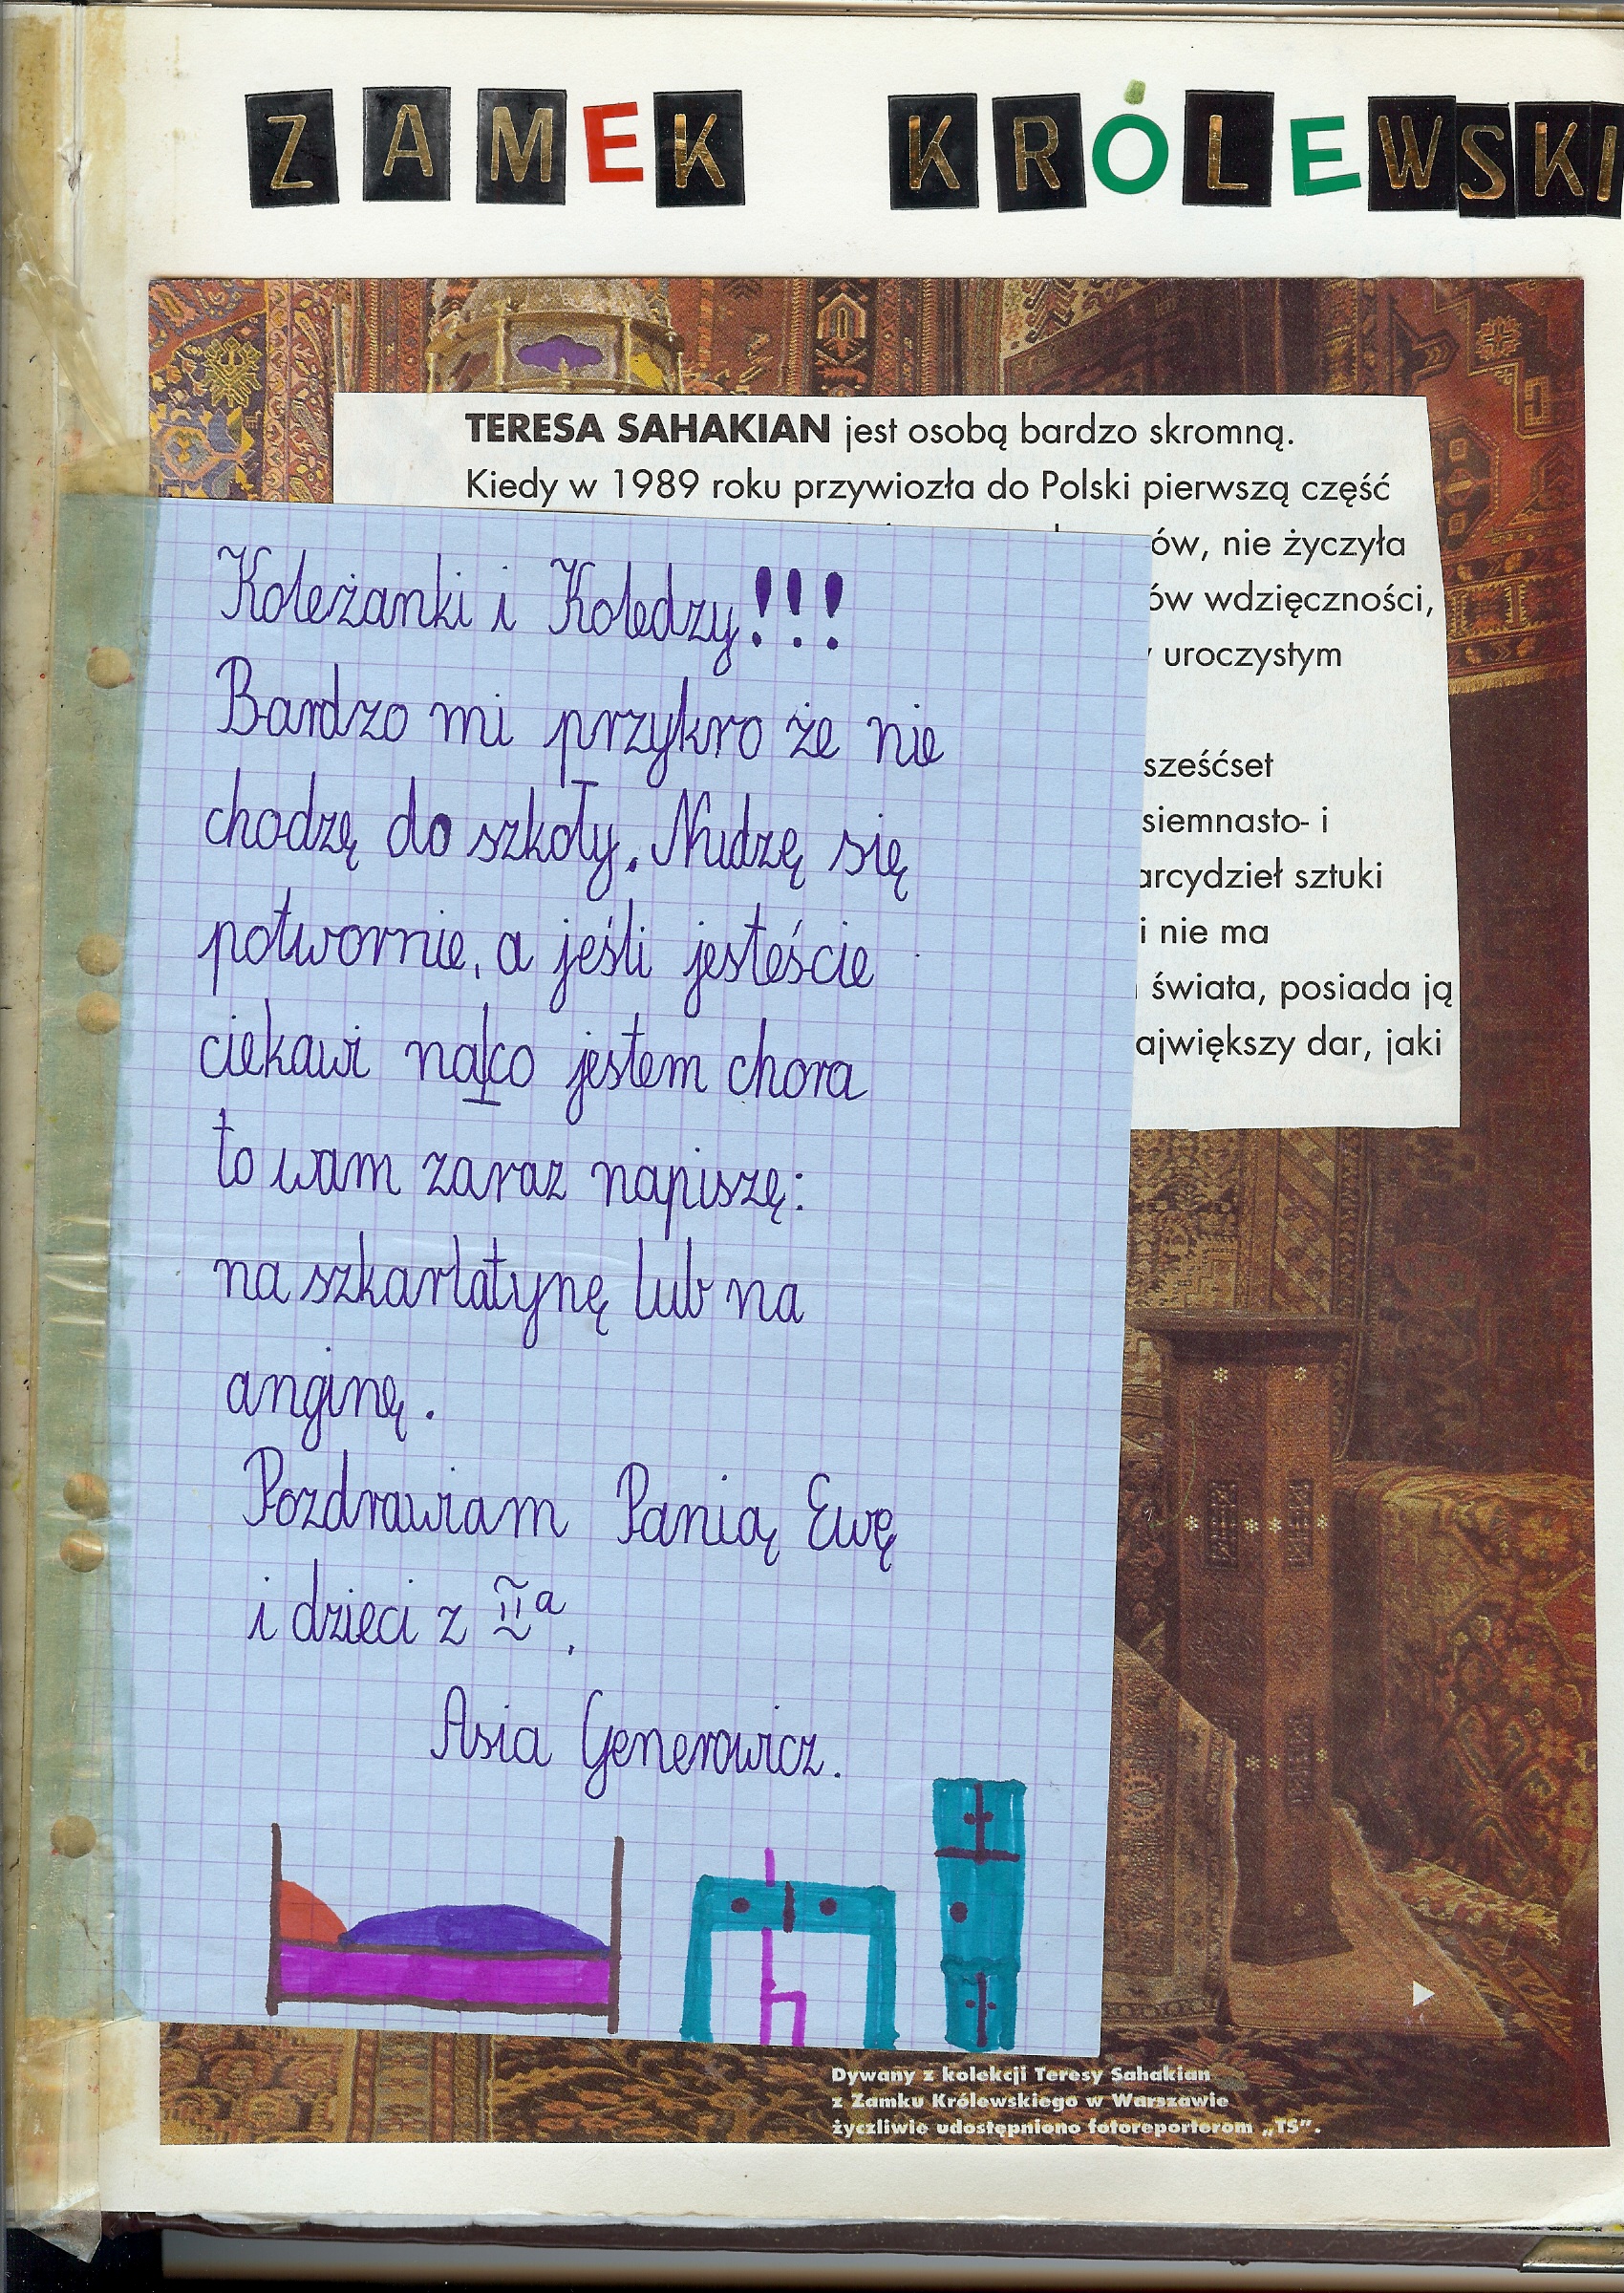 ZAMEK KRÓLEWSKI
TERESA SAHAKIAN jest osobą bardzo skromną.
Kiedy w 1989 roku przywiozła do Polski pierwszą część
ów, nie życzyła
ów wdzięczności,
uroczystym
sześćset
siemnasto- i
arcydzieł sztuki
i nie ma
świata, posiada ją
ajwiększy dar, jaki
Koleżanki i Koledzy!!!
Bardzo mi przykro że nie
chodzę do szkoły. Nudzę się
potwornie, a jeśli jesteście
ciekawi na co jestem chora
to wam zaraz napiszę:
na szkarlatynę lub na
anginę.
Pozdrawiam Panią Ewę
i dzieci z IIa.
Asia Generowicz.
Dywany z kolekcji Teresy Sahakian
z Zamku Królewskiego w Warszawie
życzliwie udostępniono fotoreporterom „TS”.